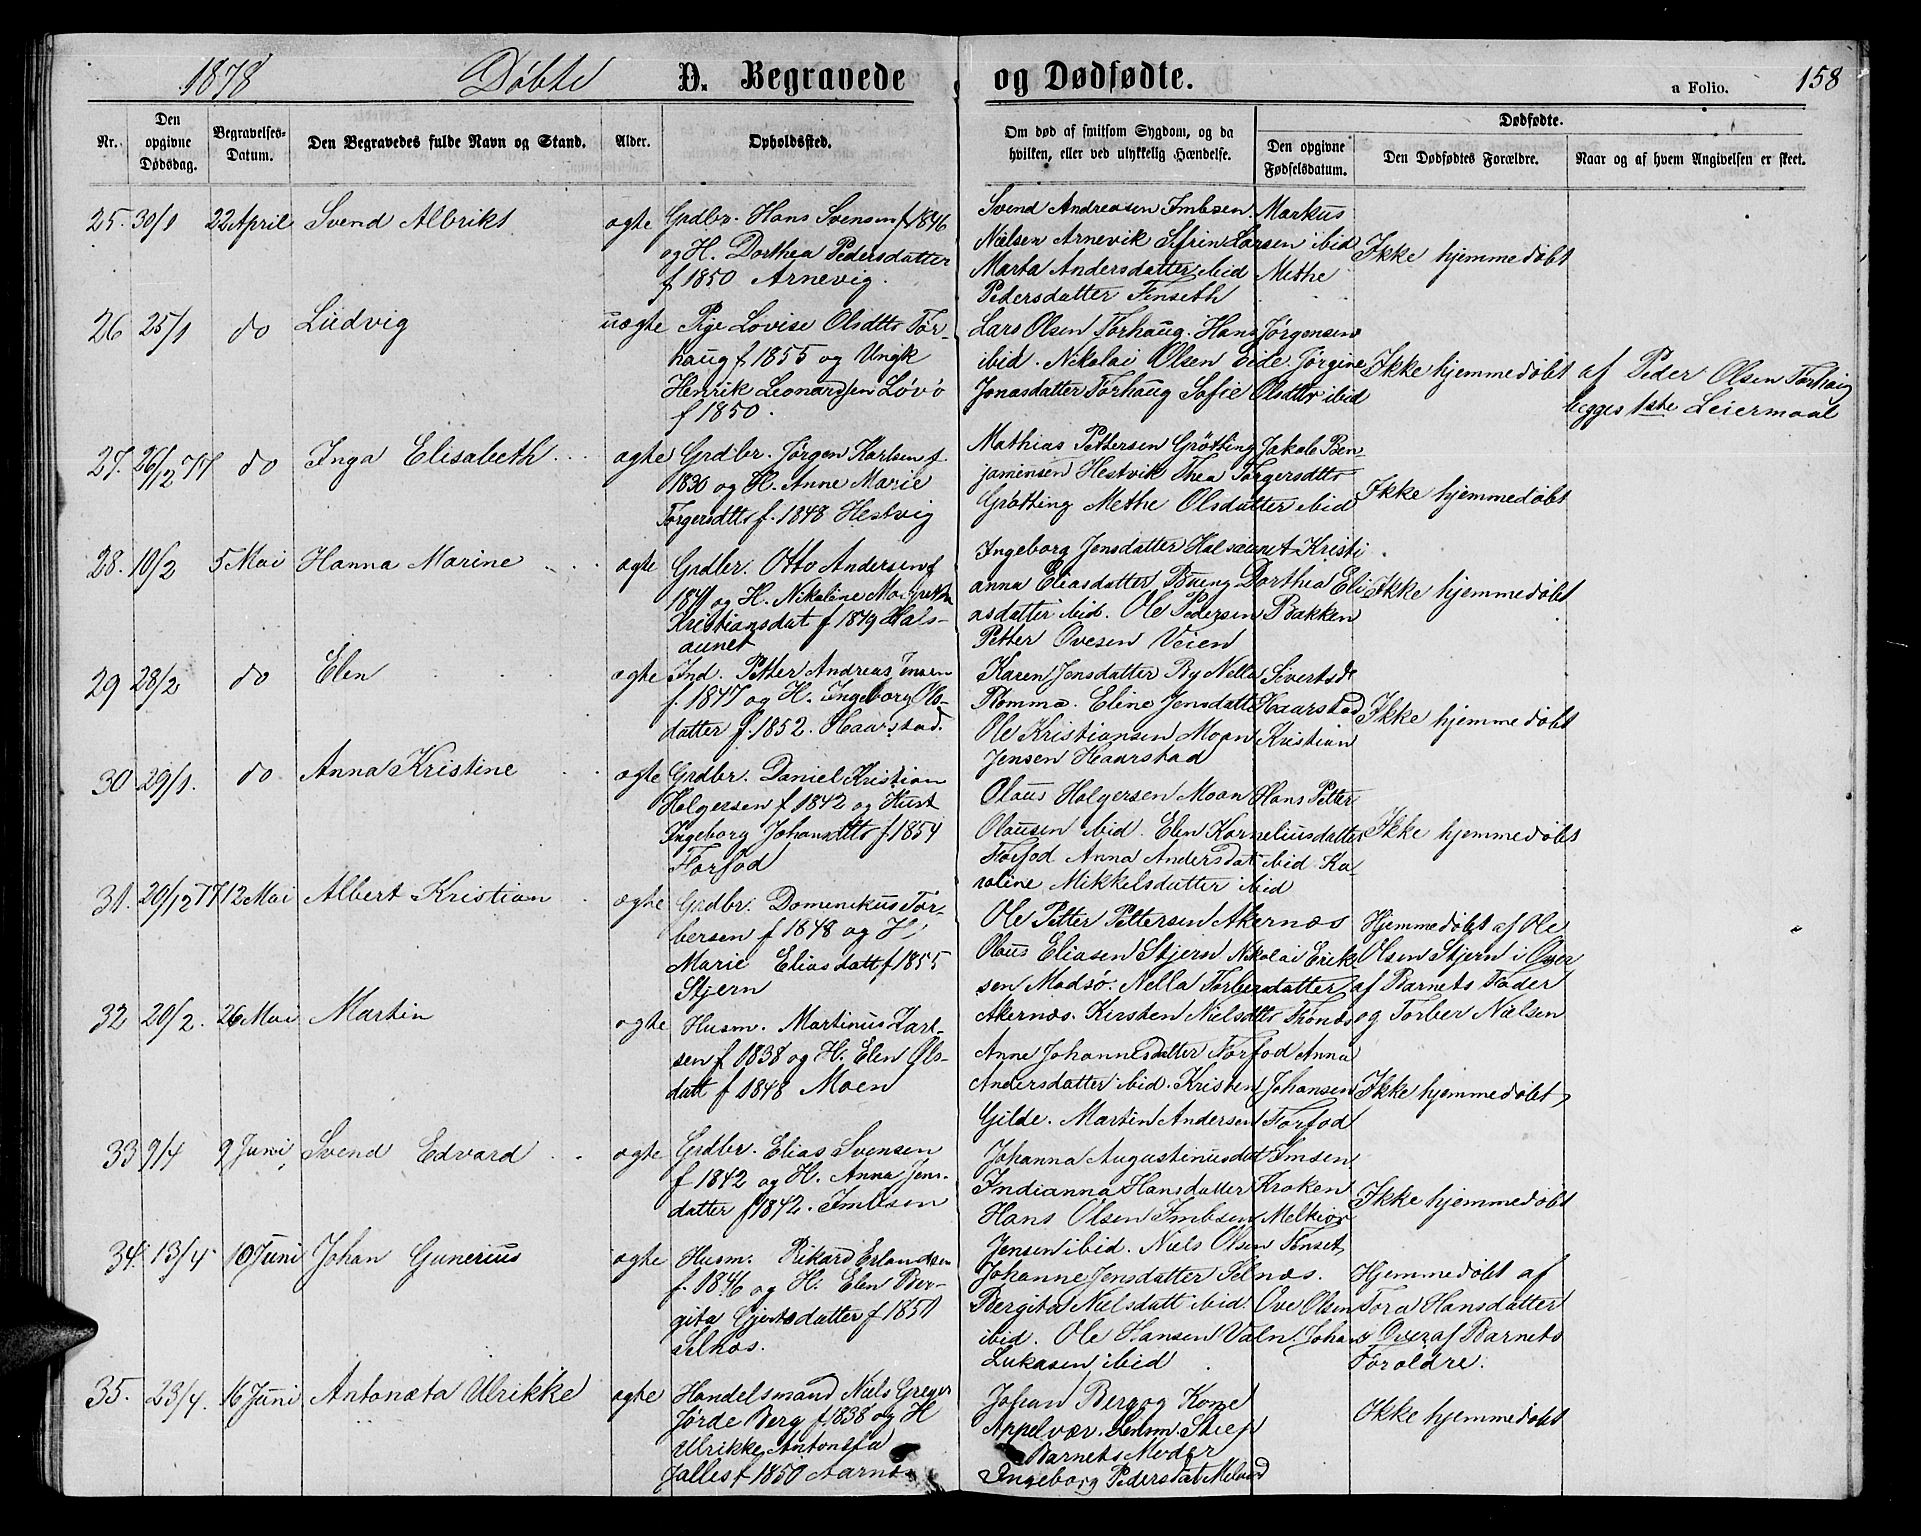 1878 Døbte D. Begravede og Dødfødte. a Folio. 158
Nr. Den opgivne Dødsdag. Begravelses-Datum. Den Begravedes fulde Navn og Stand. Alder. Opholdssted. Om død af smitsom Sygdom, og da hvilken, eller ved ulykkelig Hændelse. Dødfødte. Den opgivne Fødselsdatum. Den Dødfødtes Forældre. Naar og af hvem Angivelsen er skeet.
25. 30/1 22 April Svend Albrikt ægte
Grdbr. Hans Svensen f 1846
og H. Dorthea Pedersdatter
f 1850 Arnevig.
Svend Andreasen Imbsen. Markus
Nielsen Arnevik Sefrin Larsen ibid
Marta Andersdatter ibid Methe
Pedersdatter Finseth
Ikke hjemmedøbt
26 25/1 do Ludvig uægte
Pige Lovise Olsdtts Tør-
haug f. 1855 og Ungk
Henrik Leonardsen Løvö
f 1850.
Lars Olsen Torhaug. Hans Jørgensen
ibid. Nikolai Olsen Eide. Jørgine
Jonasdatter Torhaug Sofie Olsdttr ibid
Ikke hjemmedøbt
af Peder Olsen Torhaug
begges 1ste Leiermaal
27. 26/12 77 do Inga Elisabeth ægte
Grdbr. Jørgen Karlsen f.
1830 og H. Anne Marie
Torgersdtts f. 1848 Hestvig
Mathias Pettersen Grøtting Jakob Ben-
jaminsen Hestvik Thea Torgersdtts
Grøtting Methe Olsdatter ibid
Ikke hjemmedøbt
28. 10/2 5 Mai Hanna Marine ægte
Grdbr. Otto Andersen f
1841 og H. Nikoline Margretha
Kristiansdat f 1849 Hals-
aunet
Ingeborg Jensdatter Halsaunet Kristi
anna Eliasdatter Bueng Dorthea Eli
asdatter ibid. Ole Pedersen Bakken
Petter Ovesen Veien
Ikke hjemmedøbt
29 28/2 do Elen ægte
Ind. Petter Andreas Jensen
f. 1847 og H. Ingeborg Ols-
datter f. 1852. Haarstad.
Karen Jensdatter By Nella Sivertsdt
Romma. Eline Jensdatte Haarstad
Ole Kristiansen Moan Kristian
Jensen Haarstad
Ikke hjemmedøbt
30 29/1. do Anna Kristine ægte
Grdbr. Daniel Kristian
Holgersen f 1842 og Hust
Ingeborg Johansdtts f. 1854
Forfod
Olaus Holgersen Moan Hans Petter
Olausen ibid. Elen Korneliusdatter
Forfod Anna Andersdat ibid Ka-
roline Mikkelsdatter ibid
Ikke hjemmedøbt
31. 20/12 77 12 Mai Albert Kristian ægte
Grdbr. Domenikus Tor-
bersen f 1848 og H.
Marie Eliasdatt f 1855
Stjern
Ole Petter Pettersen Akernæs
Olaus Eliasen Stjern Nikolai Erik-
sen Madsö. Nella Torbersdatter
Akernæs. Kirsten Nielsdtts Fionæs
Hjemmedøbt af Ole
Olsen Stjern i Over
af Barnets Fader
og Torber Nielsen
32 20/2. 26 Mai Martin ægte
Husm. Martinus Karl-
sen f 1838 og H. Elen Ols-
datt f 1848 Moen
Anne Johannesdatter Forfod Anna
Andersdatter ibid. Kristen Johansen
Gilde. Martin Andersen Forfod
Ikke hjemmedøbt
33 9/4 9 Juni Svend Edvard ægte
Grdbr. Elias Svensen
f 1842 og H. Anna Jens-
datter f 1842. Imbsen
Johanna Augustinusdat Imsen
Indianna Hansdatter Kroken
Hans Olsen Imbsen Melkior
Jensen ibid. Niels Olsen Finset
Ikke hjemmedøbt
34. 13/4 10 Juni Johan Gunerius ægte
Husm. Rikard Erlandsen
f. 1846 og H. Elen Ber-
gita Gjertsdatter f 1851
Selnæs.
Johanne Jensdatter Selnæs.
Bergita Nielsdatt ibid. Ove Olsen
ibid. Ole Hansen Valn. Johan
Lukasen ibid
Hjemmedøbt af
Tora Hansdatter
i Over af Barnets
Forældre.
35. 23/4. 16 Juni Antonæta Ulrikke ægte
Handelsmand Niels Greger
Jørde Berg f 1838 og H
Ulrikke Antonæta
f 1850
Johan Berg og Kone
Appelvær. Lensm.
Barnets Moder
Ingeborg Pedersdat
Ikke hjemmedøbt